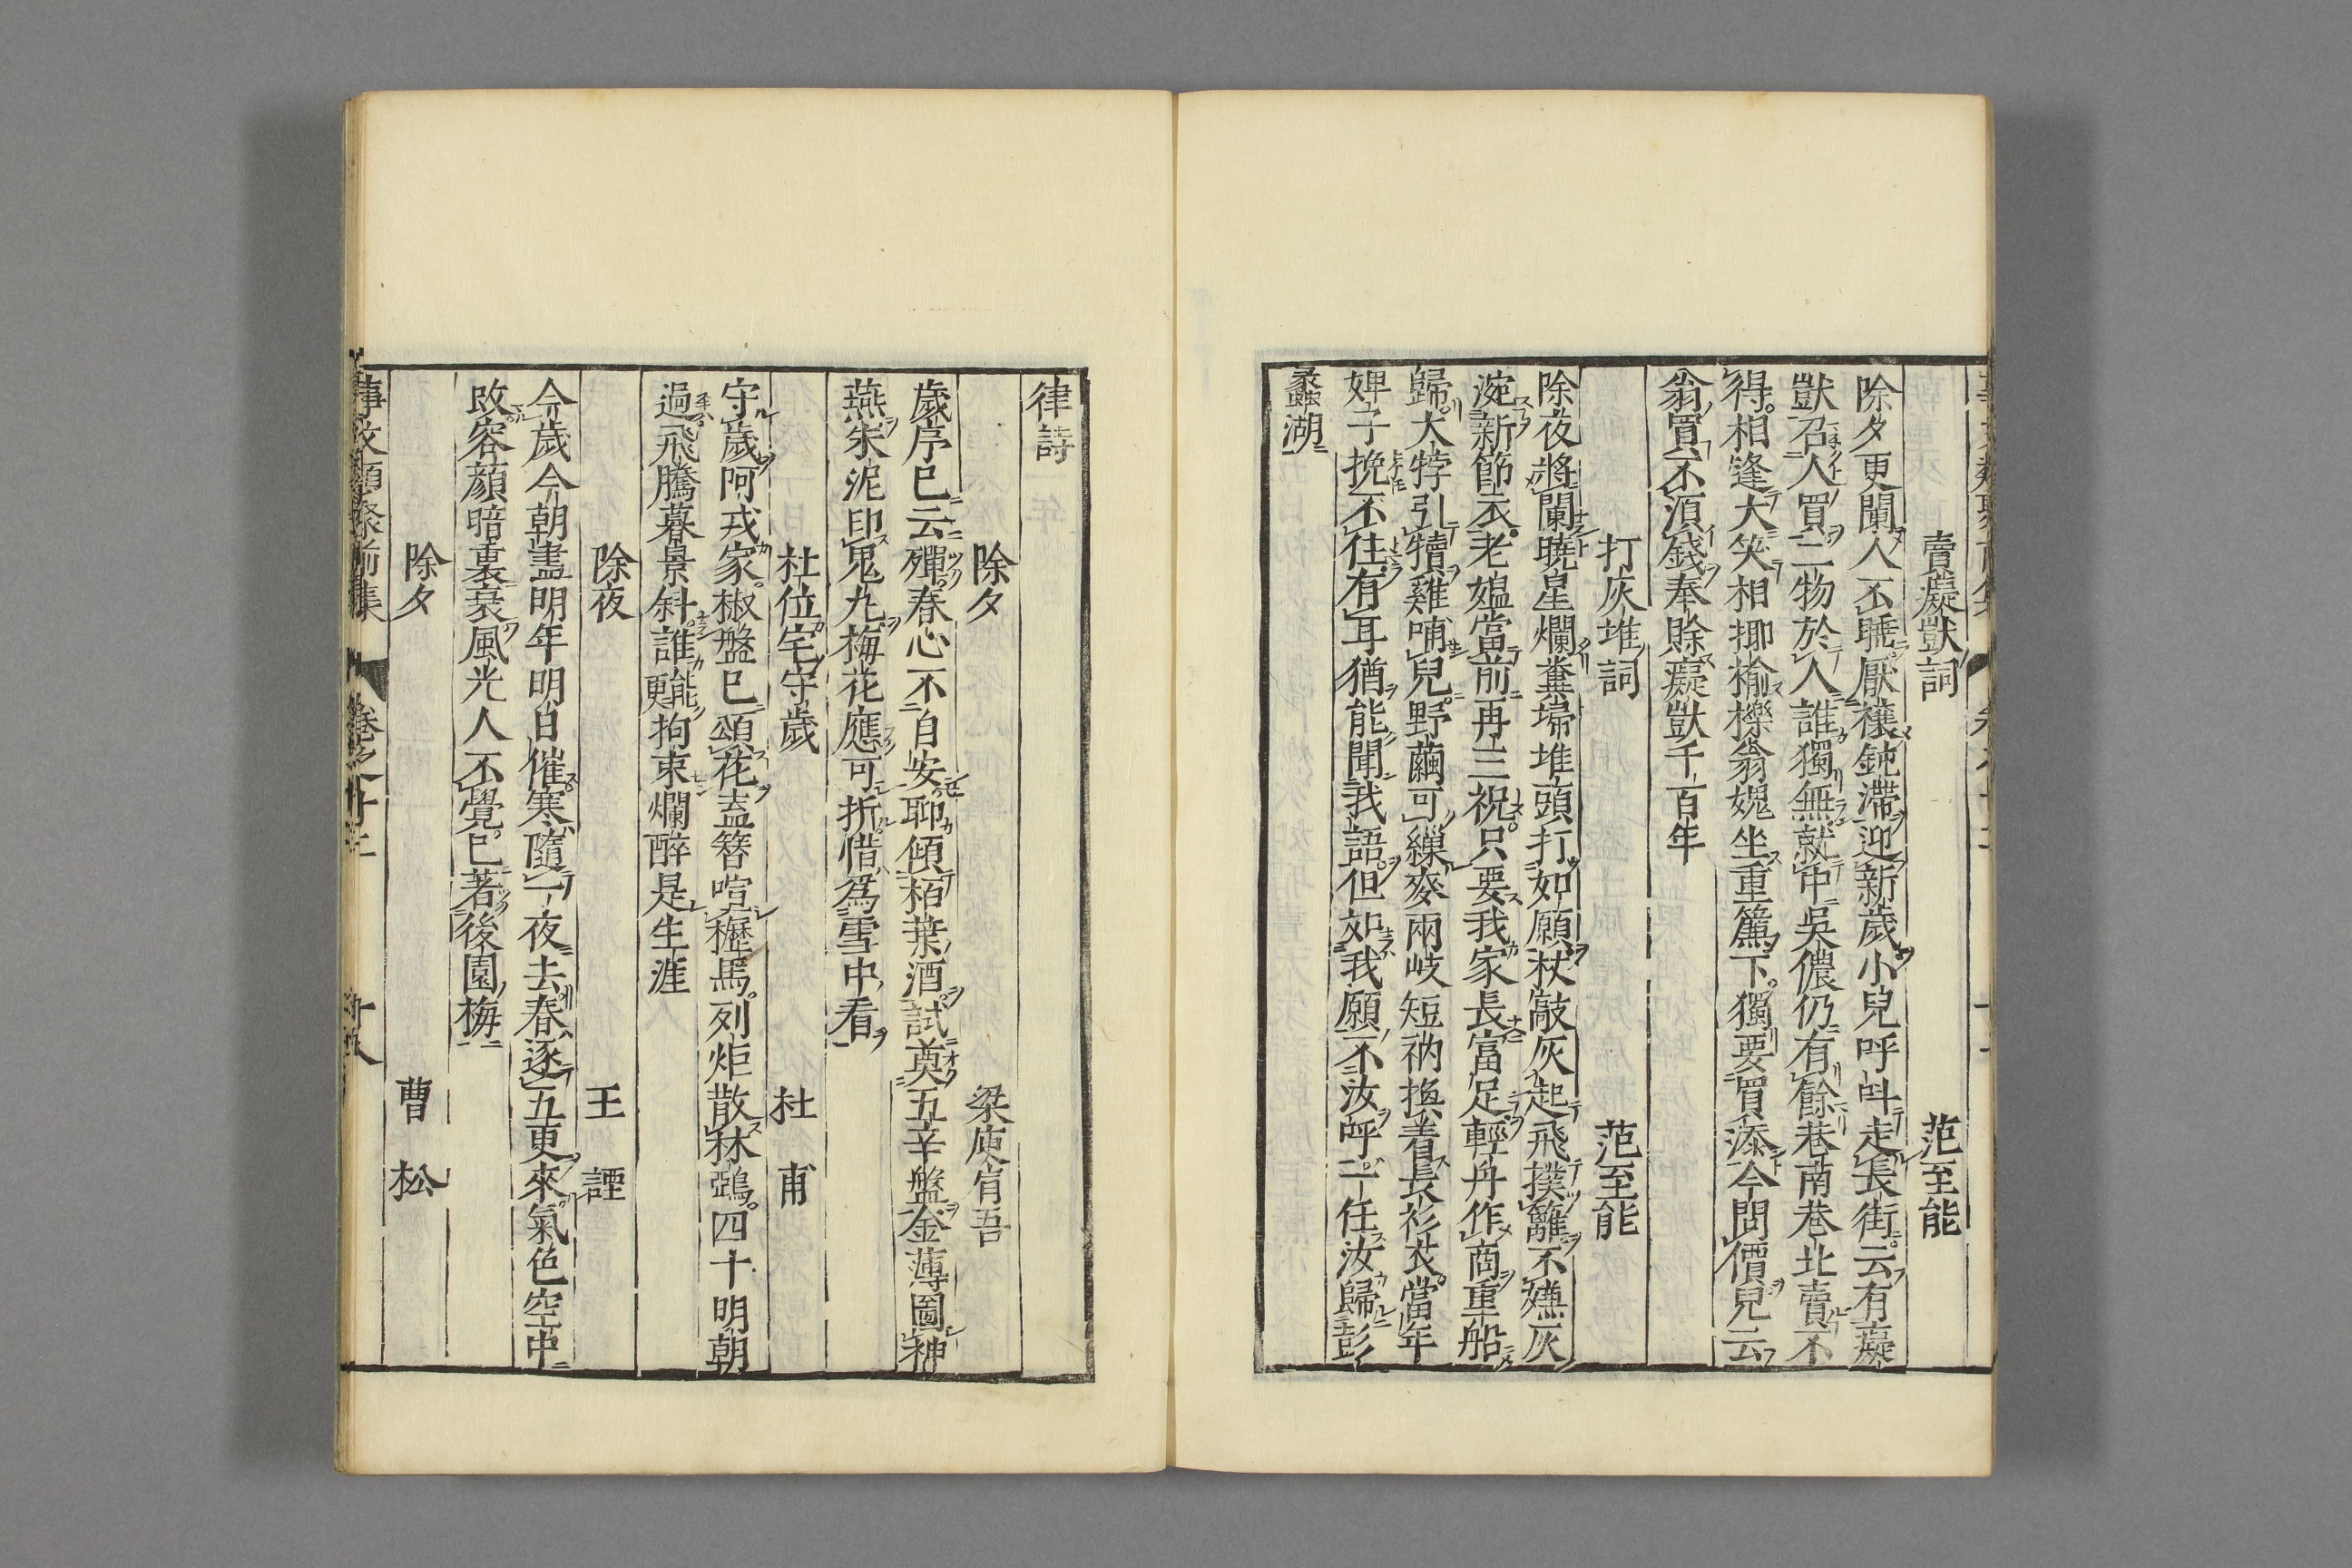 賣癡獃詞　范至能
除夕更闌人不睡厭禳鈍滯迎新歲小兒呼呌走長街云有癡
獃召人買二物於人誰獨無就中吳儂仍有餘巷南巷北賣不
得相逢大笑相揶揄櫟翁媿坐重簾下獨要買添令問價兒云
翁買不須錢奉賒癡獃千百年
打灰堆詞　范至能
除夜將闌曉星爛糞掃堆頭打如願杖敲灰起飛撲籬不嫌灰
涴新節衣老媼當前再三祝只要我家長富足輕舟作商重船
歸大㹀引犢雞哺兒野繭可繅麥兩岐短衲換着長衫衣當年
婢子挽不住有耳猶能聞我語但如我願不汝呼一任汝歸彭
蠡湖
律詩
除夕　梁庾肩吾
歲序已云殫春心不自安聊傾栢葉酒試奠五辛盤金薄圖神
燕朱泥印鬼丸梅花應可折惜爲雪中看
杜位宅守歲　杜甫
守歲阿戎家椒盤已頌花盍簪喧櫪馬列炬散林鵶四十明朝
過飛騰暮景斜誰能更拘束爛醉是生涯
除夜　王諲
今歲今朝盡明年明日催寒隨一夜去春逐五更來氣色空中
改容顔暗裏衰風光人不覺已著後園梅
除夕　曹松
事文類聚前集　卷之十二